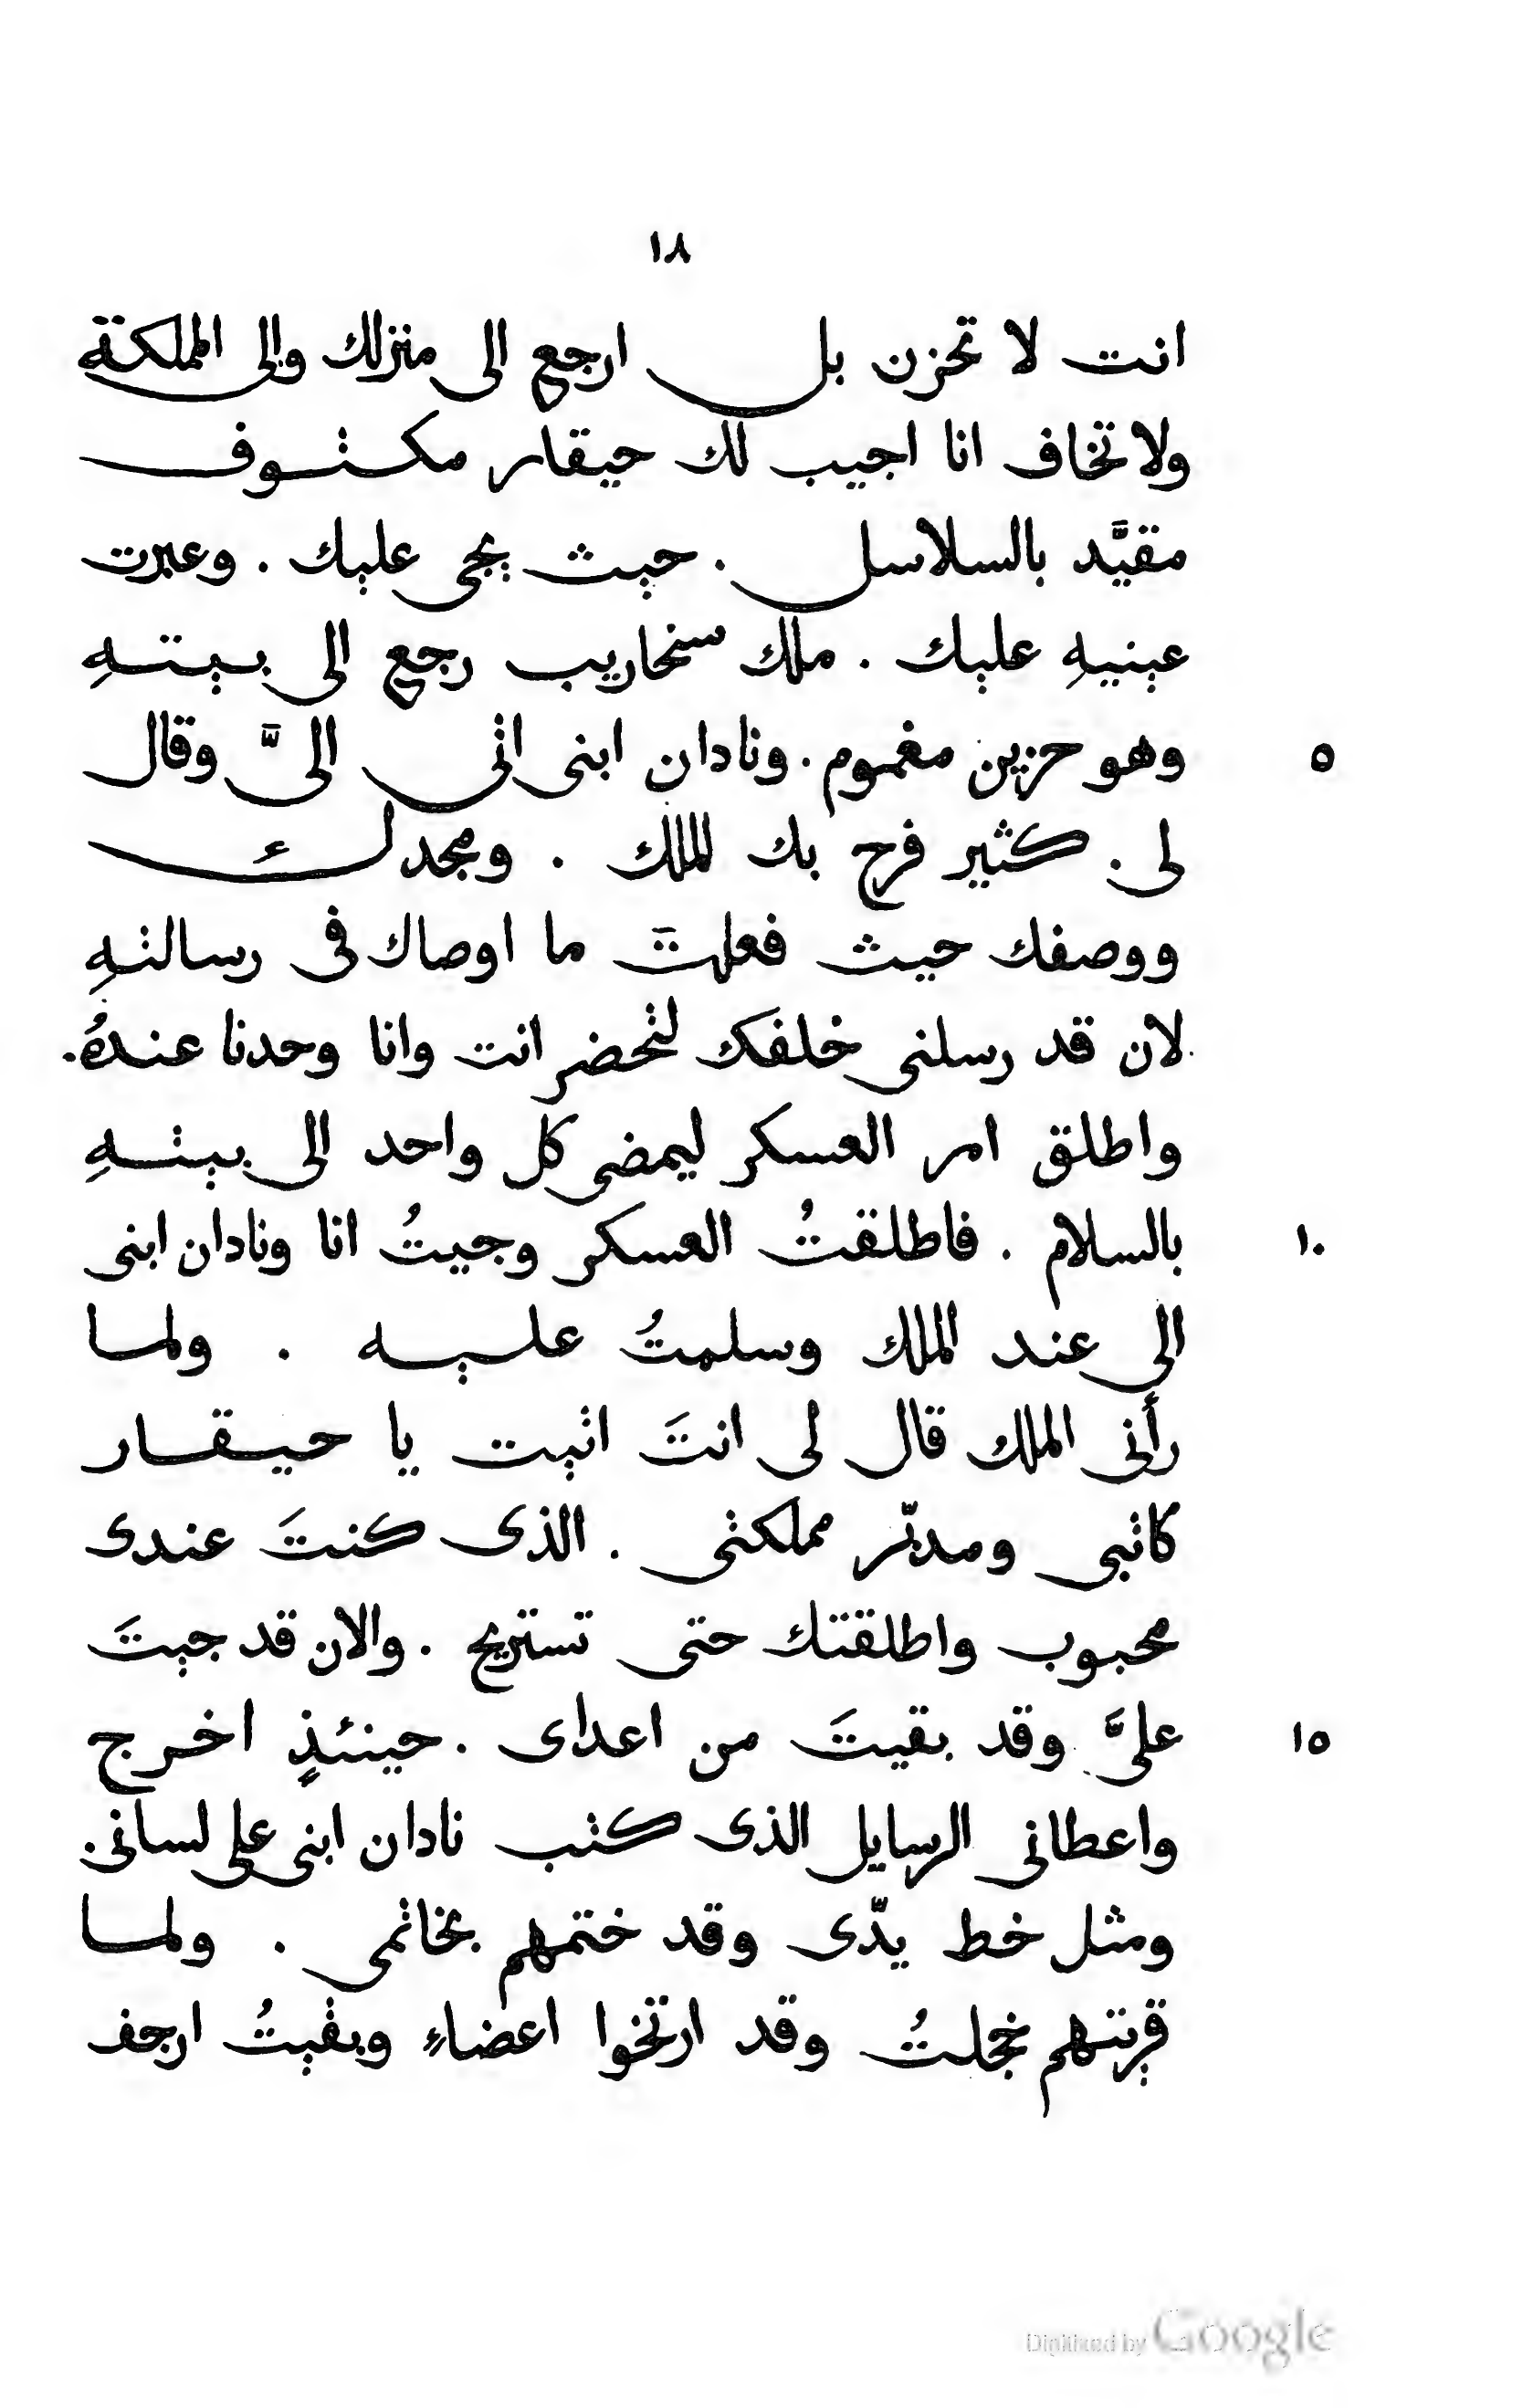 ١٨
انت لا تحزن بل ارجع الى منزلك والى المملكة
ولا تخاف انا اجيب لك حيقار مكتوف
مقيَّد بالسلاسل . حيث يجى عليك . وعبرت
عينيهِ عليك . ملك سنحاريب رجع الى بيتهِ
وهو حزين مغموم . ونادان ابنى اتى الىَّ وقال
٥
لى . كثير فرح بك الملك . ومجدلك
ووصفك حيث فعلتَ ما اوصاك فى رسالتهِ
لان قد رسلنى خلفك لتحضر انت وانا وحدنا عندهُ .
واطلق امر العسكر ليمضى كل واحد الى بيتهِ
بالسلام . فاطلقتُ العسكر وجيتُ انا ونادان ابنى
١٠
الى عند الملك وسلمتُ عليه . ولما
رأنى الملك قال لى انتَ اتيت يا حيقار
كاتبى ومدبّر مملكتى . الذى كنتَ عندى
محبوب واطلقتك حتى تستريح . والان قد جيتَ
علىَّ وقد بقيتَ من اعداى . حينئذٍ اخرج
١٥
واعطانى الرسايل الذى كتب نادان ابنى على لسانى .
ومثل خط يدّى وقد ختمهم بخاتمى . ولما
قريتهم نجلتُ وقد ارتخوا اعضاءِ وبقيتُ ارجف
Digitized by Google